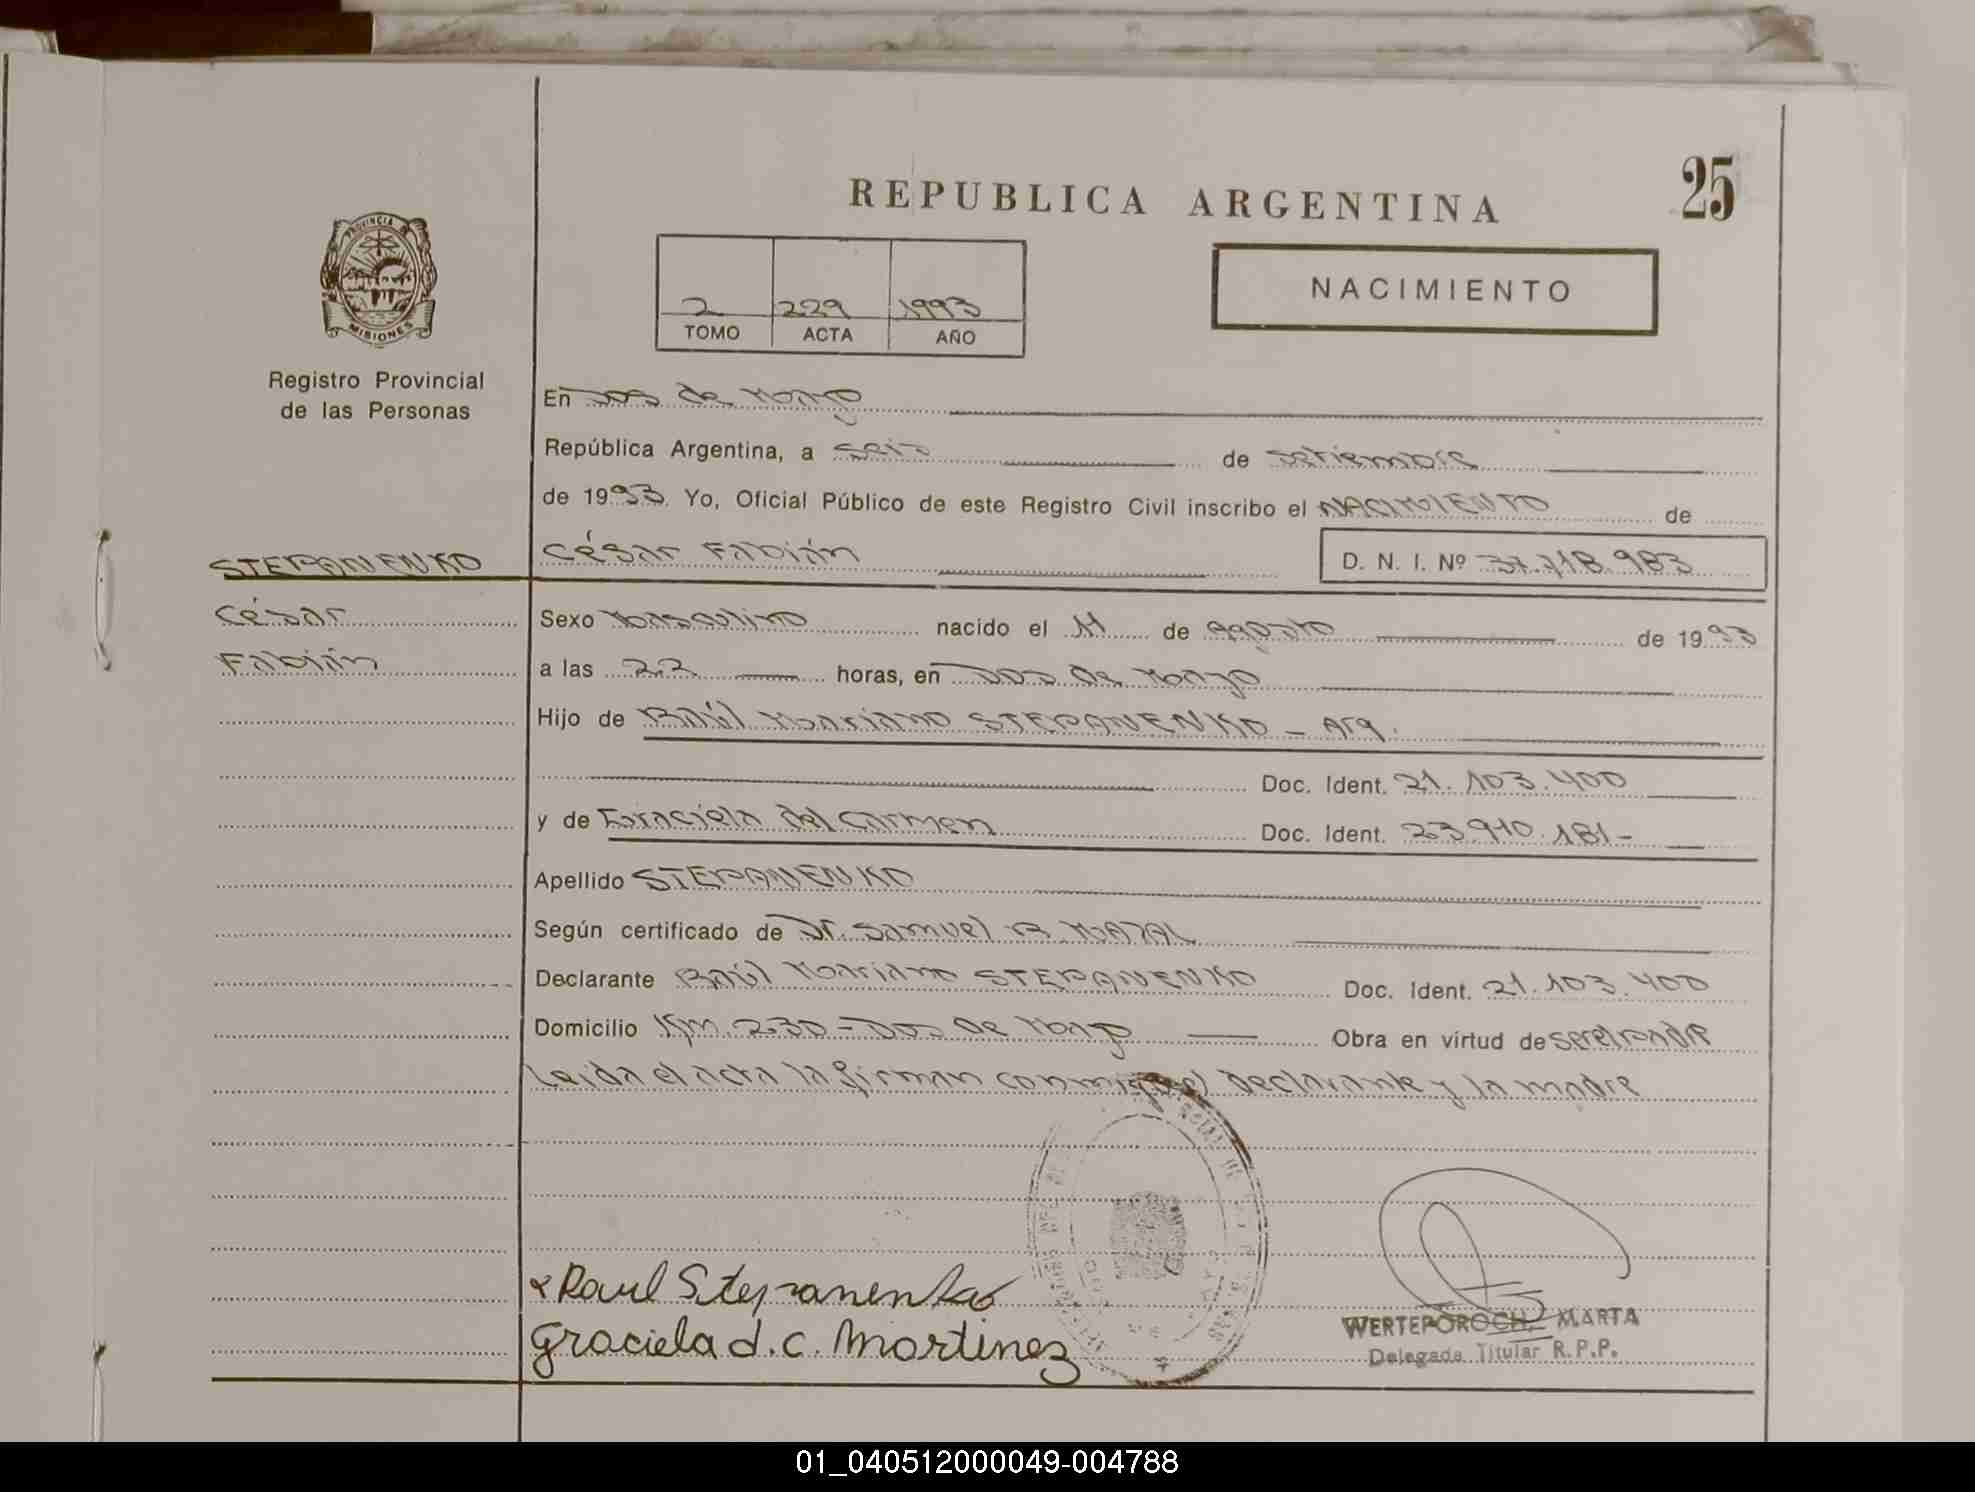 25
REPUBLICA ARGENTINA
PROVINCIA DE
MISIONES
2 229 1993
TOMO ACTA AÑO
NACIMIENTO
Registro Provincial
de las Personas
En Dos de Mayo
República Argentina, a seis de setiembre
de 1993. Yo, Oficial Público de este Registro Civil inscribo el NACIMIENTO de
STEPANENKO
César
Fabián
César Fabián D. N. I. Nº 37.718.983
Sexo Masculino nacido el 11 de agosto de 1993
a las 22 horas, en Dos de Mayo
Hijo de Raúl Mariano STEPANENKO - Arg.
Doc. Ident. 21.103.400
y de Graciela del Carmen Doc. Ident. 23.910.181-
Apellido STEPANENKO
Según certificado de Dr. Samuel
Declarante Raúl Mariano STEPANENKO Doc. Ident. 21.103.400
Domicilio Km. 230 - Dos de Mayo Obra en virtud de ser el padre
Leída el acta la firman conmigo el declarante y la madre
Raul Stepanenko
Graciela d. c. Martinez
WERTEPOROCH, MARTA
Delegada Titular R.P.P.
01_040512000049-004788